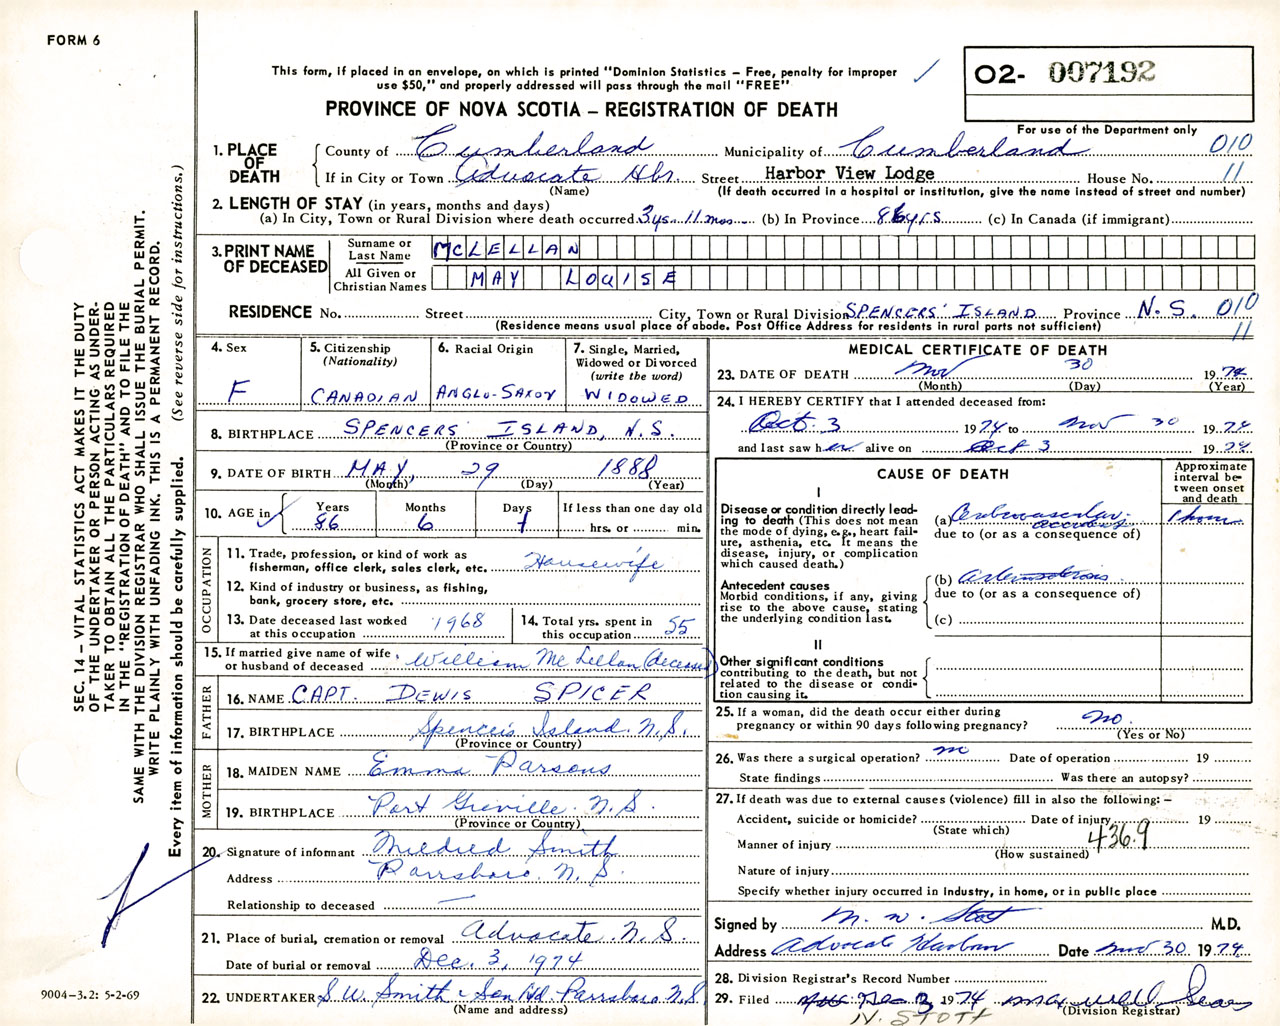 FORM 6
This form, if placed in an envelope, on which is printed "Dominion Statistics – Free, penalty for improper
use $50," and properly addressed will pass through the mail "FREE"
02- 007192
PROVINCE OF NOVA SCOTIA – REGISTRATION OF DEATH
For use of the Department only
1. PLACE OF DEATH
County of Cumberland Municipality of Cumberland 010
If in City or Town Advocate Hbr. Street Harbor View Lodge House No. 11
(Name) (If death occurred in a hospital or institution, give the name instead of street and number)
2. LENGTH OF STAY (in years, months and days)
(a) In City, Town or Rural Division where death occurred 3 ys. 11 mos. (b) In Province 86 yrs (c) In Canada (if immigrant)
3. PRINT NAME OF DECEASED
Surname or Last Name McLELLAN
All Given or Christian Names MAY LOUISE
RESIDENCE No. Street City, Town or Rural Division SPENCERS' ISLAND Province N.S. 010
(Residence means usual place of abode. Post Office Address for residents in rural parts not sufficient) 11
4. Sex
F
5. Citizenship
(Nationality)
CANADIAN
6. Racial Origin
ANGLO-SAXON
7. Single, Married,
Widowed or Divorced
(write the word)
WIDOWED
8. BIRTHPLACE SPENCERS' ISLAND, N.S.
(Province or Country)
9. DATE OF BIRTH MAY, 29 1888
(Month) (Day) (Year)
10. AGE in
Years Months Days If less than one day old
86 6 1 hrs. or min.
OCCUPATION
11. Trade, profession, or kind of work as
fisherman, office clerk, sales clerk, etc. Housewife
12. Kind of industry or business, as fishing,
bank, grocery store, etc.
13. Date deceased last worked
at this occupation 1968
14. Total yrs. spent in
this occupation 55
15. If married give name of wife
or husband of deceased William McLellan (deceased)
FATHER
16. NAME CAPT. DEWIS SPICER
17. BIRTHPLACE Spencer's Island. N.S.
(Province or Country)
MOTHER
18. MAIDEN NAME Emma Parsons
19. BIRTHPLACE Port Greville. N.S.
(Province or Country)
20. Signature of informant Mildred Smith
Address Parrsboro. N.S.
Relationship to deceased —
21. Place of burial, cremation or removal Advocate. N.S.
Date of burial or removal Dec. 3, 1974
22. UNDERTAKER S.W. Smith & Son Ltd. Parrsboro N.S.
(Name and address)
MEDICAL CERTIFICATE OF DEATH
23. DATE OF DEATH Nov 30 1974
(Month) (Day) (Year)
24. I HEREBY CERTIFY that I attended deceased from:
Oct. 3 1974 to Nov 30 1974
and last saw her alive on Oct 3 1974
CAUSE OF DEATH
Approximate
interval be-
tween onset
and death
I
Disease or condition directly lead-
ing to death (This does not mean
the mode of dying, e.g., heart fail-
ure, asthenia, etc. It means the
disease, injury, or complication
which caused death.)
(a) Cerebrovascular accident 1 hour
due to (or as a consequence of)
Antecedent causes
Morbid conditions, if any, giving
rise to the above cause, stating
the underlying condition last.
(b) Arteriosclerosis
due to (or as a consequence of)
(c)
II
Other significant conditions
contributing to the death, but not
related to the disease or condi-
tion causing it.
25. If a woman, did the death occur either during
pregnancy or within 90 days following pregnancy? No.
(Yes or No)
26. Was there a surgical operation? no Date of operation 19
State findings Was there an autopsy?
27. If death was due to external causes (violence) fill in also the following: –
Accident, suicide or homicide? Date of injury 19
(State which)
Manner of injury 436.9
(How sustained)
Nature of injury
Specify whether injury occurred in industry, in home, or in public place
Signed by M. W. Stott M.D.
Address Advocate Harbour Date Nov 30 1974
28. Division Registrar's Record Number
29. Filed Dec 3 1974 Maxwell Sears
(Division Registrar)
N. STOTT
SEC. 14 – VITAL STATISTICS ACT MAKES IT THE DUTY
OF THE UNDERTAKER OR PERSON ACTING AS UNDER-
TAKER TO OBTAIN ALL THE PARTICULARS REQUIRED
IN THE "REGISTRATION OF DEATH" AND TO FILE THE
SAME WITH THE DIVISION REGISTRAR WHO SHALL ISSUE THE BURIAL PERMIT.
WRITE PLAINLY WITH UNFADING INK. THIS IS A PERMANENT RECORD.
Every item of information should be carefully supplied. (See reverse side for instructions.)
9004-3.2: 5-2-69